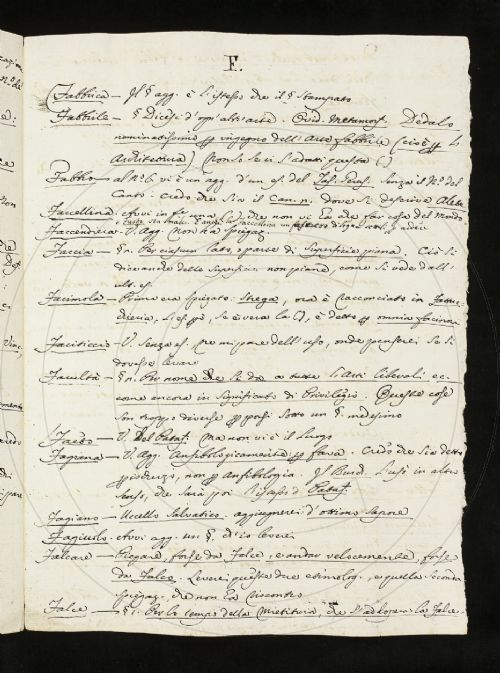 F.
Fabbrica — Il § agg. è l'istesso che il § stampato
Fabbrile — § Dicesi d'ogni altr'arte. Ovid. Metamorf. Dedalo
nominatissimo per ingegno dell'Arte fabbrile (cioè per l'
Architettura) (Non so se ci s'adatti questa ()
Fabbro — al N.° 6 vi è un agg. d'un es. del senza il N.° del
Canto. Credo che sia il Can. n. dove si descrive
Faccellina — che non vi ha che far cosa del mondo
Faccenderia — V. Agg. Non ha spiegaz.
Faccia — § n. Per ciascun lato, o parte di Superficie piana. Ciò si
dice anche delle Superficie non piane, come si vede dall'
ult. es.
Facimola — Prima era spiegato: Strega, ora è racconciato in Fattuc-
chieria, l'es. poi, se è vera la (), è detto per omnia facimola
Faciticcio — V. Senza es. ne mi pare dell'uso, onde penserei se si
dovesse levare
Facultà — § n. Per nome che si dà a tutte l'Arti liberali ec.
come ancora in significato di Privilegio. Queste cose
son troppo diverse per porsi sotto un §. medesimo
Faedo — V. Del Pataf. Ma non vi è il luogo
Fagiana — V. Agg. Anfibologicamente per fava. Credo che sia detto
per ischerzo, non per Anfibologia. Il Burch. l'usò in altro
senso, che sarà poi l'istesso del Pataf.
Fagiano — Uccello Salvatico. aggiugnerei: d'ottimo sapore
Fagiuolo — vi agg. un §. ch'io leverei
Falcare — Piegare, forse da Falce, e andar velocemente, forse
da Falco. Leverei queste due etimolog., e quella seconda
spiegaz. che non ha riscontro
Falce — § 1. Per lo tempo della Mietitura, che s'adopera la Falce.